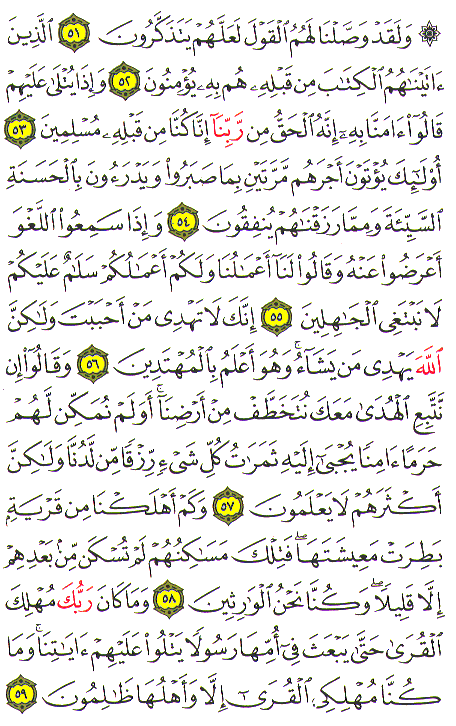 ۞ وَلَقَدْ وَصَّلْنَا لَهُمُ الْقَوْلَ لَعَلَّهُمْ يَتَذَكَّرُونَ ٥١ الَّذِينَ
ءَاتَيْنَاهُمُ الْكِتَابَ مِن قَبْلِهِۦ هُم بِهِۦ يُؤْمِنُونَ ٥٢ وَإِذَا يُتْلَىٰ عَلَيْهِمْ
قَالُوٓا۟ ءَامَنَّا بِهِۦٓ إِنَّهُ الْحَقُّ مِن رَّبِّنَآ إِنَّا كُنَّا مِن قَبْلِهِۦ مُسْلِمِينَ ٥٣
أُو۟لَٰٓئِكَ يُؤْتَوْنَ أَجْرَهُم مَّرَّتَيْنِ بِمَا صَبَرُوا۟ وَيَدْرَءُونَ بِالْحَسَنَةِ
السَّيِّئَةَ وَمِمَّا رَزَقْنَٰهُمْ يُنفِقُونَ ٥٤ وَإِذَا سَمِعُوا۟ اللَّغْوَ
أَعْرَضُوا۟ عَنْهُ وَقَالُوا۟ لَنَآ أَعْمَٰلُنَا وَلَكُمْ أَعْمَٰلُكُمْ سَلَٰمٌ عَلَيْكُمْ
لَا نَبْتَغِى الْجَٰهِلِينَ ٥٥ إِنَّكَ لَا تَهْدِى مَنْ أَحْبَبْتَ وَلَٰكِنَّ
اللَّهَ يَهْدِى مَن يَشَآءُ ۚ وَهُوَ أَعْلَمُ بِالْمُهْتَدِينَ ٥٦ وَقَالُوٓا۟ إِن
نَّتَّبِعِ الْهُدَىٰ مَعَكَ نُتَخَطَّفْ مِنْ أَرْضِنَآ ۚ أَوَلَمْ نُمَكِّن لَّهُمْ
حَرَمًا ءَامِنًا يُجْبَىٰٓ إِلَيْهِ ثَمَرَٰتُ كُلِّ شَىْءٍ رِّزْقًا مِّن لَّدُنَّا وَلَٰكِنَّ
أَكْثَرَهُمْ لَا يَعْلَمُونَ ٥٧ وَكَمْ أَهْلَكْنَا مِن قَرْيَةٍۭ
بَطِرَتْ مَعِيشَتَهَا ۖ فَتِلْكَ مَسَٰكِنُهُمْ لَمْ تُسْكَن مِّنۢ بَعْدِهِمْ
إِلَّا قَلِيلًا ۖ وَكُنَّا نَحْنُ الْوَٰرِثِينَ ٥٨ وَمَا كَانَ رَبُّكَ مُهْلِكَ
الْقُرَىٰ حَتَّىٰ يَبْعَثَ فِىٓ أُمِّهَا رَسُولًا يَتْلُوا۟ عَلَيْهِمْ ءَايَٰتِنَا ۚ وَمَا
كُنَّا مُهْلِكِى الْقُرَىٰٓ إِلَّا وَأَهْلُهَا ظَٰلِمُونَ ٥٩